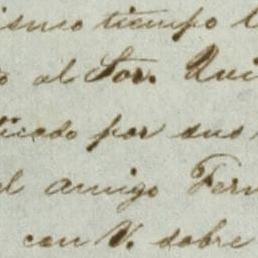 ismo tiempo l
o al Sor. Qui
ticado por sus
el amigo Fern
con V. sobre